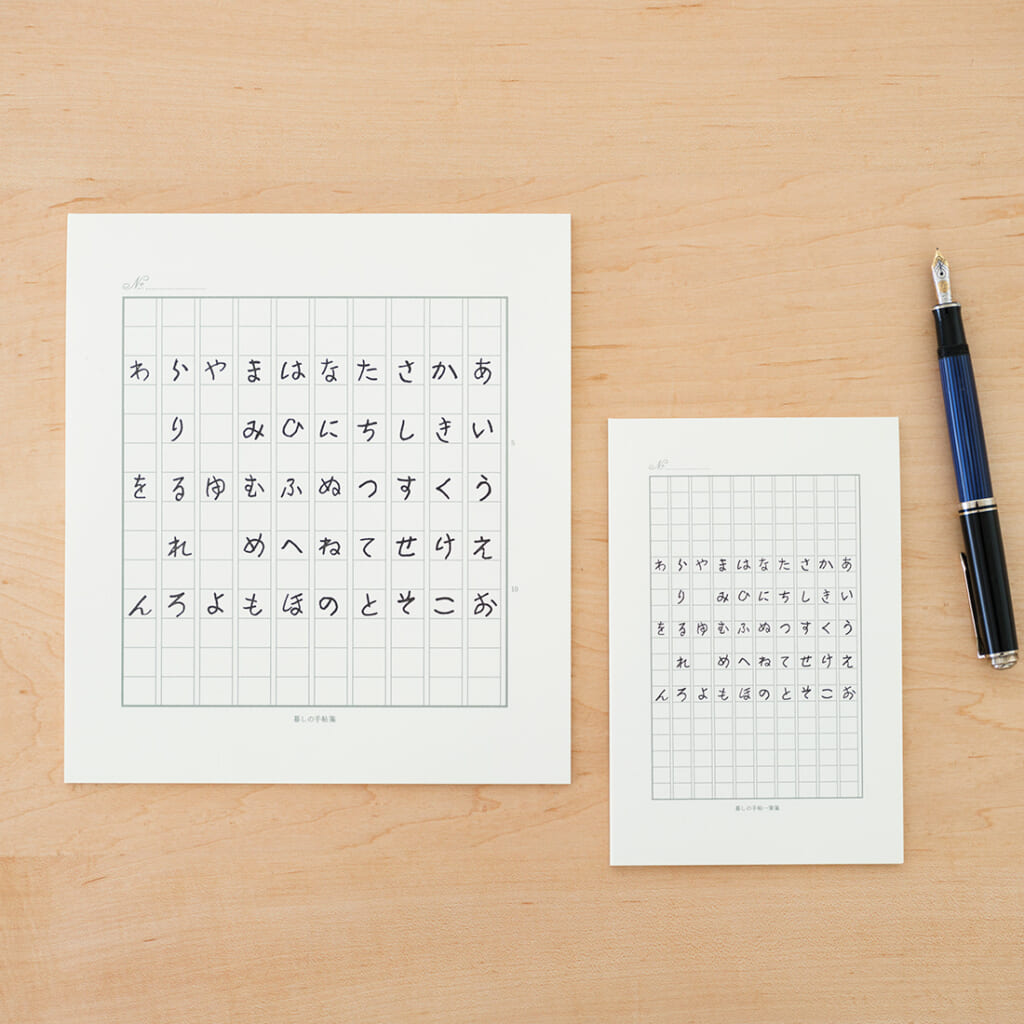 №
あいうえお
かきくけこ
さしすせそ
たちつてと
なにぬねの
はひふへほ
まみむめも
やゆよ
らりるれろ
わをん
5
10
暮しの手帖箋
№
あいうえお
かきくけこ
さしすせそ
たちつてと
なにぬねの
はひふへほ
まみむめも
やゆよ
らりるれろ
わをん
暮しの手帖一筆箋